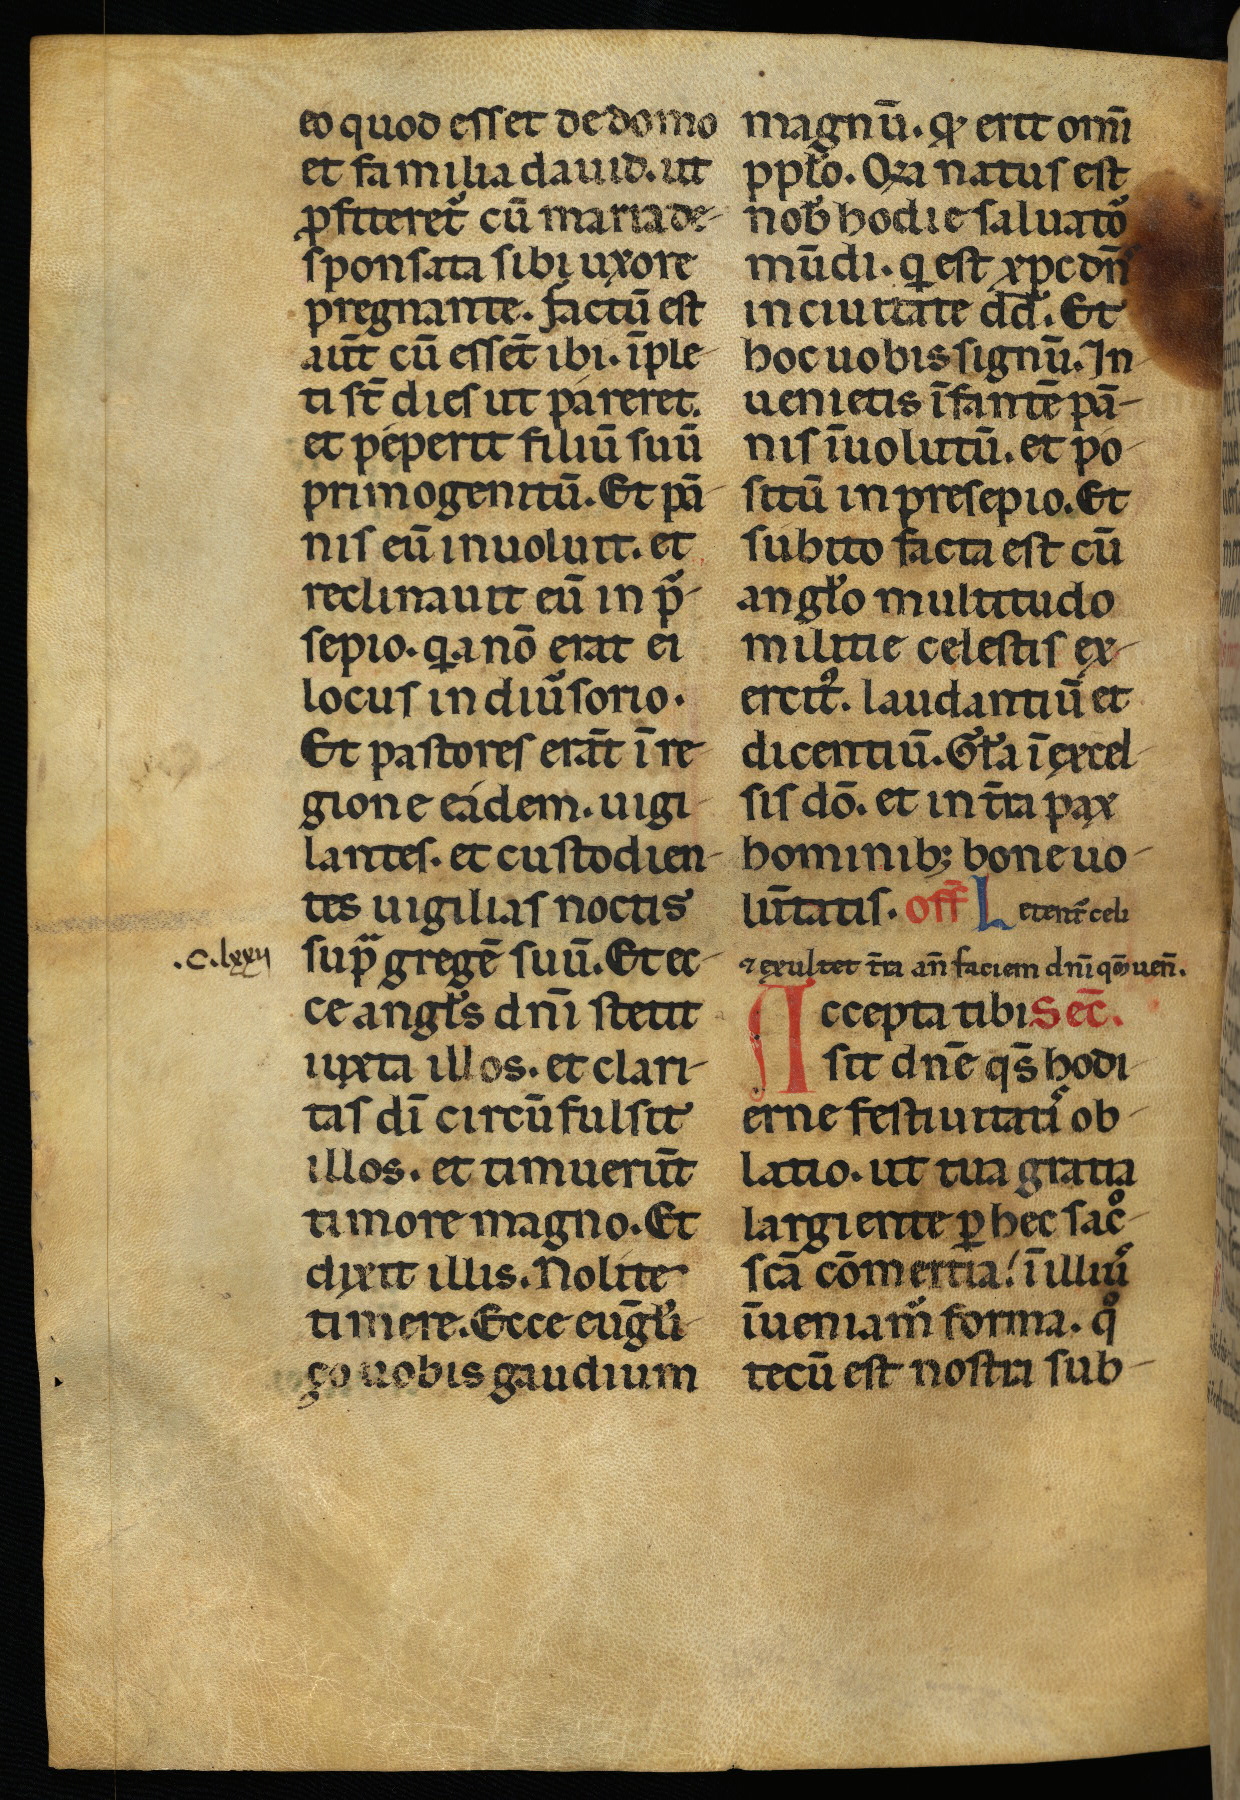 eo quod esset de domo
et familia dauid. ut
ꝓfiteret᷑ cū maria de-
sponsata sibi uxore
pregnante. factū est
aut̄ cū esset̄ ibi. īple-
ti st̄ dies ut páreret.
et péperit filiū suū
primogenitū. Et pā-
nis eū inuoluit. et
reclinauit eū in p̄-
sepio. q̢a nō erat ei
locus in diu͛sorio.
Et pastores erāt ī re-
gione eádem. uigi-
lantes. et custodien-
tes uigilias noctis
.c.lxxii
sup̃ gregē suū. Et ec-
ce angl̓s dnī stetit
iuxta illos. et clari-
tas dī circūfulsit
illos. et timuerūt
timore magno. Et
dixit illis. Nolite
timere. Ecce eūgl̓i-
ço uobis gaudium
magnū. qͥ erit omī
ppl̓o. Ora natus est
nob̓ hodie saluato͛
mūdi. q̢ est xp̄c dn̄s
in ciuitate dd̓. Et
hoc uobis signū. In-
uenietis īfantē pā-
nis īuolutū. et po-
sitū in presepio. Et
subito facta est cū
angl̓o multitudo
militie celestis ex-
ercit᷒. laudantiū et
dicentiū. Gl̓a ī excel-
sis dō. et in tr̄a pax
hominibꝫ bone uo-
lūtatis. off̄ Letent᷑ celi
⁊ exultet tr̄a an̄ faciem dnī qm̄ uen̄.
Accepta tibi Sec̄.
sit dnē qs̄ hodi-
erne festiuitatiˢ ob-
latio. ut tua gratia
largiente ꝑ hec sacͦ-
scā cōmertia! ī illiuˢ
īueniam᷒ forma. qͦ
tecū est nostra sub-